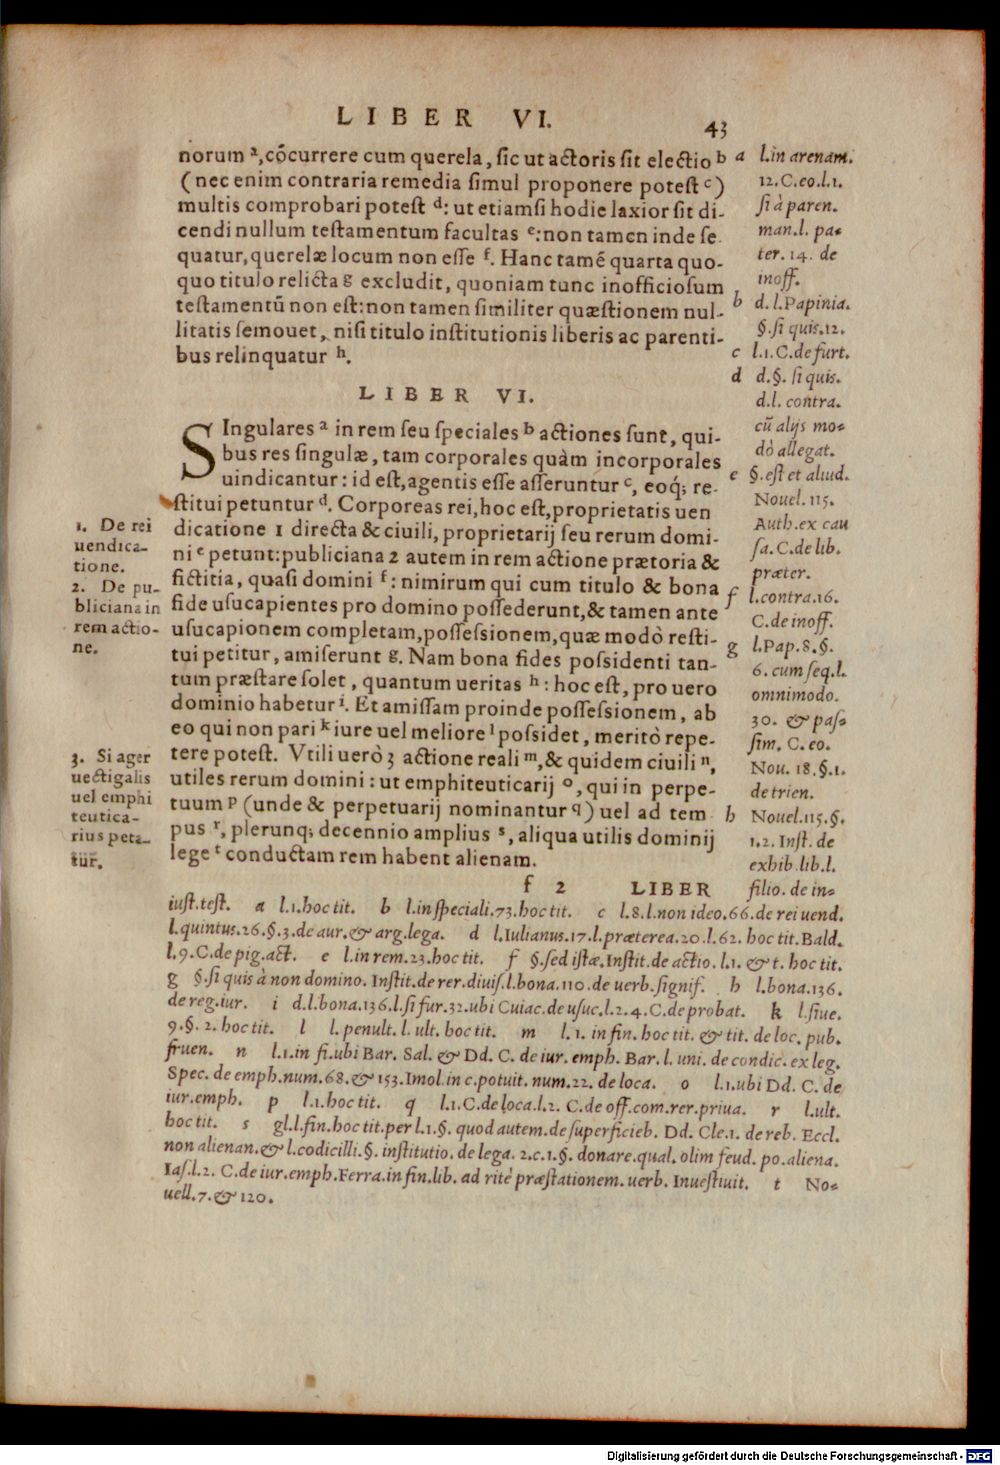 LIBER VI.
43
norum ᵃ, cõcurrere cum querela, sic ut actoris sit electio b
(nec enim contraria remedia simul proponere potest ᶜ)
multis comprobari potest ᵈ: ut etiamsi hodie laxior sit di-
cendi nullum testamentum facultas ᵉ: non tamen inde se
quatur, querelæ locum non esse ᶠ. Hanc tamẽ quarta quo-
quo titulo relicta g excludit, quoniam tunc inofficiosum
testamentũ non est: non tamen similiter quæstionem nul-
litatis semouet, nisi titulo institutionis liberis ac parenti-
bus relinquatur ʰ.
LIBER VI.
SIngulares ᵃ in rem seu speciales ᵇ actiones sunt, qui-
bus res singulæ, tam corporales quàm incorporales
uindicantur: id est, agentis esse asseruntur ᶜ, eoq́; re-
stitui petuntur ᵈ. Corporeas rei, hoc est, proprietatis uen
dicatione 1 directa & ciuili, proprietarij seu rerum domi-
ni ᵉ petunt: publiciana 2 autem in rem actione prætoria &
fictitia, quasi domini ᶠ: nimirum qui cum titulo & bona
fide usucapientes pro domino possederunt, & tamen ante
usucapionem completam, possessionem, quæ modò resti-
tui petitur, amiserunt g. Nam bona fides possidenti tan-
tum præstare solet, quantum ueritas ʰ: hoc est, pro uero
dominio habetur ⁱ. Et amissam proinde possessionem, ab
eo qui non pari ᵏ iure uel meliore ˡ possidet, meritò repe-
tere potest. Vtili uerò 3 actione reali ᵐ, & quidem ciuili ⁿ,
utiles rerum domini: ut emphiteuticarij ᵒ, qui in perpe-
tuum ᵖ (unde & perpetuarij nominantur q) uel ad tem
pus ʳ, plerunq; decennio amplius ˢ, aliqua utilis dominij
lege ᵗ conductam rem habent alienam.
f 2 LIBER
1. De rei
uendica-
tione.
2. De pu-
bliciana in
rem actio-
ne.
3. Si ager
uectigalis
uel emphi
teutica-
rius peta-
tur.
a l. in arenam.
12. C. eo. l. 1.
si à paren.
man. l. pa-
ter. 14. de
inoff.
b d. l. Papinia.
§. si quis. 12.
c l. 1. C. de furt.
d d. §. si quis.
d. l. contra.
cũ alijs mo-
dò allegat.
e §. est et aliud.
Nouel. 115.
Auth. ex cau
sa. C. de lib.
præter.
f l. contra. 16.
C. de inoff.
g l. Pap. 8. §.
6. cum seq. l.
omnimodo.
30. & pas-
sim. C. eo.
Nou. 18. §. 1.
de trien.
h Nouel. 115. §.
1. 2. Inst. de
exhib. lib. l.
filio. de in-
iust. test. a l. 1. hoc tit. b l. in speciali. 73. hoc tit. c l. 8. l. non ideo. 66. de rei uend.
l. quintus. 26. §. 3. de aur. & arg. lega. d l. Iulianus. 17. l. præterea. 20. l. 62. hoc tit. Bald.
l. 9. C. de pig. act. e l. in rem. 23. hoc tit. f §. sed istæ. Instit. de actio. l. 1. & t. hoc tit.
g §. si quis à non domino. Instit. de rer. diuis. l. bona. 110. de uerb. signif. h l. bona. 136.
de reg. iur. i d. l. bona. 136. l. si fur. 32. ubi Cuiac. de usuc. l. 2. 4. C. de probat. k l. siue.
9. §. 2. hoc tit. l l. penult. l. ult. hoc tit. m l. 1. in fin. hoc tit. & tit. de loc. pub.
fruen. n l. 1. in fi. ubi Bar. Sal. & Dd. C. de iur. emph. Bar. l. uni. de condic. ex leg.
Spec. de emph. num. 68. & 153. Imol. in c. potuit. num. 22. de loca. o l. 1. ubi Dd. C. de
iur. emph. p l. 1. hoc tit. q l. 1. C. de loca. l. 2. C. de off. com. rer. priua. r l. ult.
hoc tit. s gl. l. fin. hoc tit. per l. 1. §. quod autem. de superficieb. Dd. Cle. 1. de reb. Eccl.
non alienan. & l. codicilli. §. institutio. de lega. 2. c. 1. §. donare. qual. olim feud. po. aliena.
Ias. l. 2. C. de iur. emph. Ferra. in fin. lib. ad ritè præstationem. uerb. Inuestiuit. t No-
uell. 7. & 120.
Digitalisierung gefördert durch die Deutsche Forschungsgemeinschaft - DFG